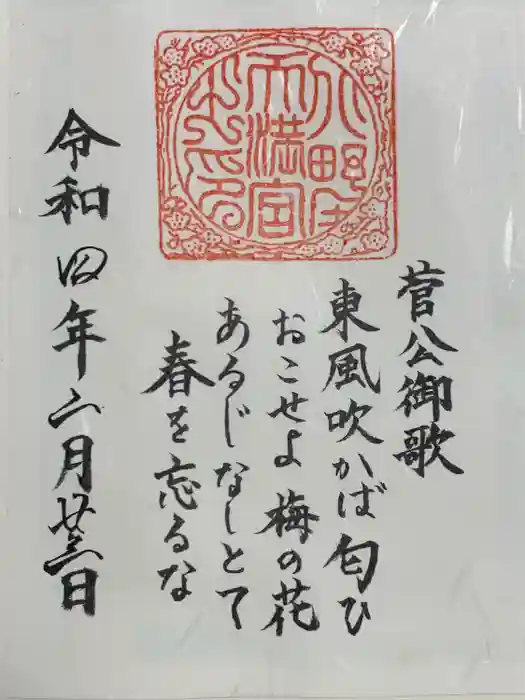 天満宮
菅公御歌
東風吹かば匂ひ
おこせよ梅の花
あるじなしとて
春を忘るな
令和四年二月廿三日